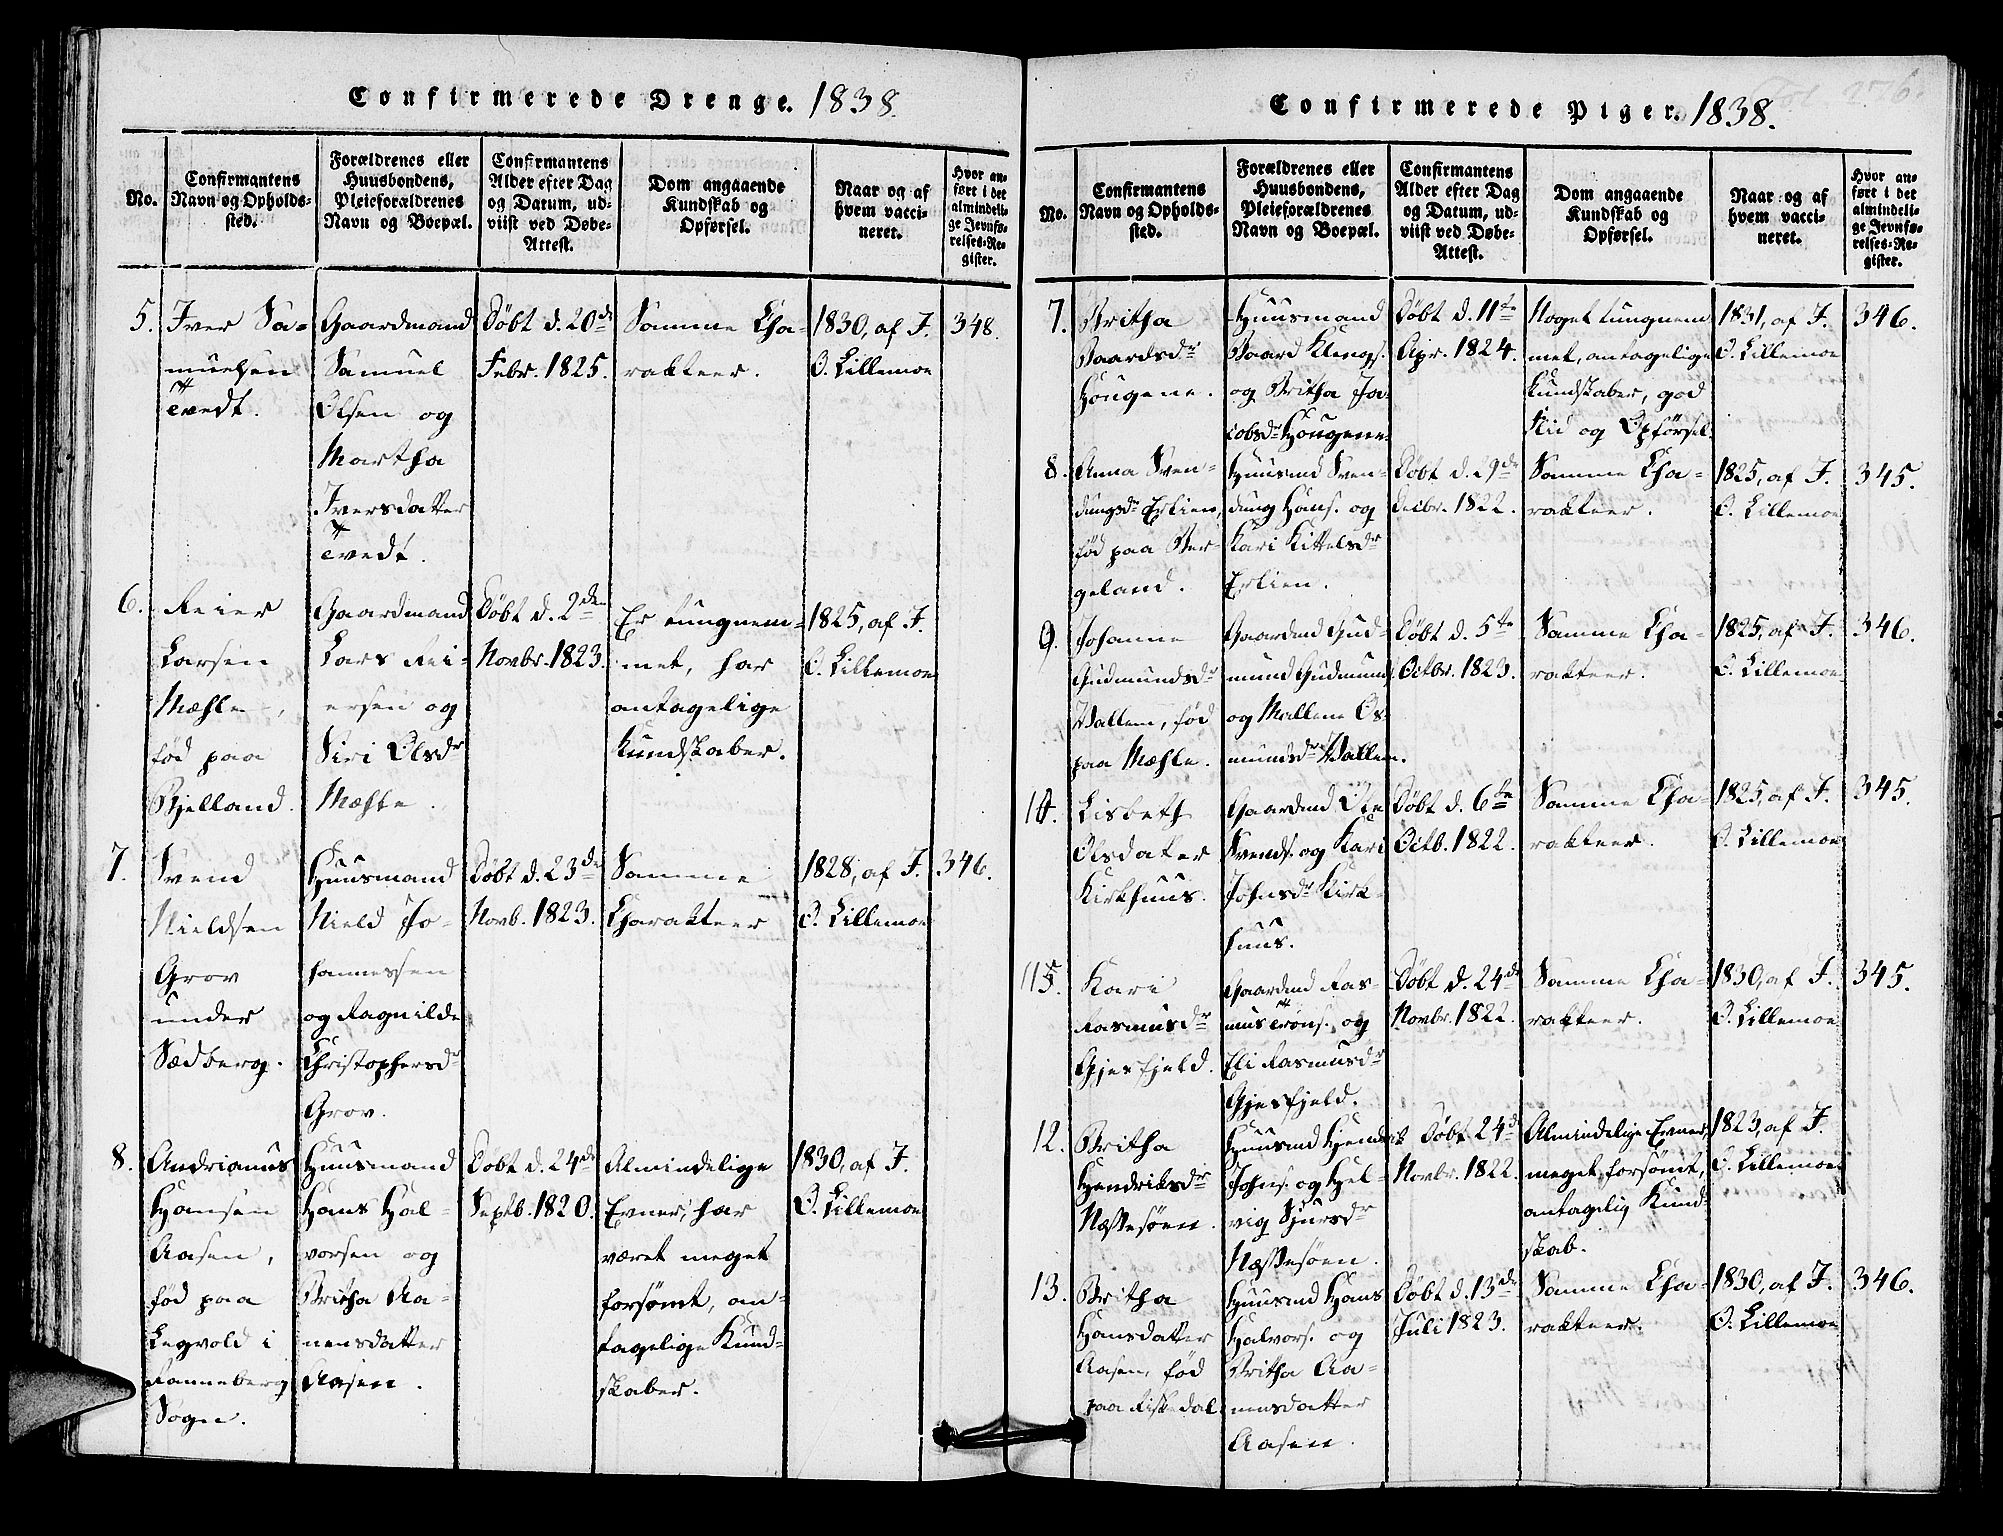 Confirmerede Drenge. 1838.
No.
Confirmantens
Navn og Opholds-
sted.
Forældrenes eller
Huusbondens,
Pleieforældrenes
Navn og Boepæl.
Confirmantens
Alder efter Dag
og Datum, ud-
viist ved Døbe-
Attest.
Dom angaaende
Kundskab og
Opførsel.
Naar og af
hvem vacci-
neret.
Hvor an-
ført i det
almindeli-
ge Jevnfø-
relses-Re-
gister.
5.
Iver Sa-
muelsen
Tvedt.
Gaardmand
Samuel
Olsen og
Martha
Iversdatter
Tvedt.
Döbt d. 20de
Febr. 1825.
Samme Cha-
rakteer.
1830, af J.
O. Lillemoe
348.
6.
Reier
Larsen
Mæhle,
fød paa
Bjelland.
Gaardmand
Lars Rei-
ersen og
Siri Olsdr
Mæhle.
Döbt d. 2den
Novbr. 1823.
Er tungnem-
met, har
antagelige
Kundskaber.
1825, af J.
O. Lillemoe
7.
Svend
Nieldsen
Grov
under
Sædberg.
Huusmand
Nield Jo-
hannessen
og Ragnilde
Christophersdr
Grov.
Döbt d. 23de
Novb. 1823.
Samme
Charakteer
1828, af J.
O. Lillemoe
346.
8.
Andrianus
Hansen
Aasen,
fød paa
Legvold i
Ranneberg
Sogn.
Huusmand
Hans Hal-
vorsen og
Britha Aa-
nensdatter
Aasen.
Döbt d. 24de
Septb. 1820.
Almindelige
Evner, har
været meget
forsömt, an-
tagelige Kund-
skaber.
1830, af J.
O. Lillemoe
Confirmerede Piger. 1838.
276.
No.
Confirmantens
Navn og Opholds-
sted.
Forældrenes eller
Huusbondens,
Pleieforældrenes
Navn og Boepæl.
Confirmantens
Alder efter Dag
og Datum, ud-
viist ved Døbe-
Attest.
Dom angaaende
Kundskab og
Opførsel.
Naar og af
hvem vacci-
neret.
Hvor an-
ført i det
almindeli-
ge Jevnfø-
relses-Re-
gister.
7.
Britha
Baardsdr
Hougene.
Huusmand
Baard Klengs.
og Britha Ja-
cobsdr Hougene
Döbt d. 11te
Apr. 1824.
Noget tungnem
met, antagelige
Kundskaber, god
Flid og Opförsel.
1831, af J.
O. Lillemoe
346.
8.
Anna Sven-
dungsdr Erkien,
fød paa Ber-
geland.
Huusmd Sven-
dung Hans. og
Kari Kittelsdr
Erkien.
Döbt d. 29de
Decbr. 1822.
Samme Cha-
rakteer.
1825, af J.
O. Lillemoe
345.
9.
Johanne
Gudmundsdr
Wallem, fød
paa Mæhle.
Gaardmd Gud-
mund Gudmunds.
og Mallene Os-
mundsdr Wallem.
Döbt d. 5te
Octbr. 1823.
Samme Cha-
rakteer.
1825, af J.
O. Lillemoe
346.
10.
Lisbeth
Olsdatter
Kirkhuus.
Gaardmd Ole
Svends. og Kari
Johnsdr Kirk-
huus.
Döbt d. 6te
Octb. 1822.
Samme Cha-
rakteer.
1825, af J.
O. Lillemoe
345.
11.
Kari
Rasmusdr
Gjesfjeld.
Gaardmd Ras-
mus Tröns. og
Eli Rasmusdr
Gjesfjeld.
Döbt d. 24de
Novbr. 1822.
Samme Cha-
rakteer.
1830, af J.
O. Lillemoe
345.
12.
Britha
Hendriksdr
Næssesøen.
Huusmd Hendrik
Johns. og Hel-
vig Sjursdr
Næssesøen.
Döbt 24de
Novbr. 1822.
Almindelige Evner,
meget forsömt,
antagelig Kund-
skab.
1823, af J.
O. Lillemoe
13.
Britha
Hansdatter
Aasen, fød
paa Riskedal
Huusmd Hans
Halvors. og
Britha Aa-
nensdatter
Aasen.
Döbt d. 13de
Juli 1823.
Samme Cha-
rakteer.
1830, af J.
O. Lillemoe
346.